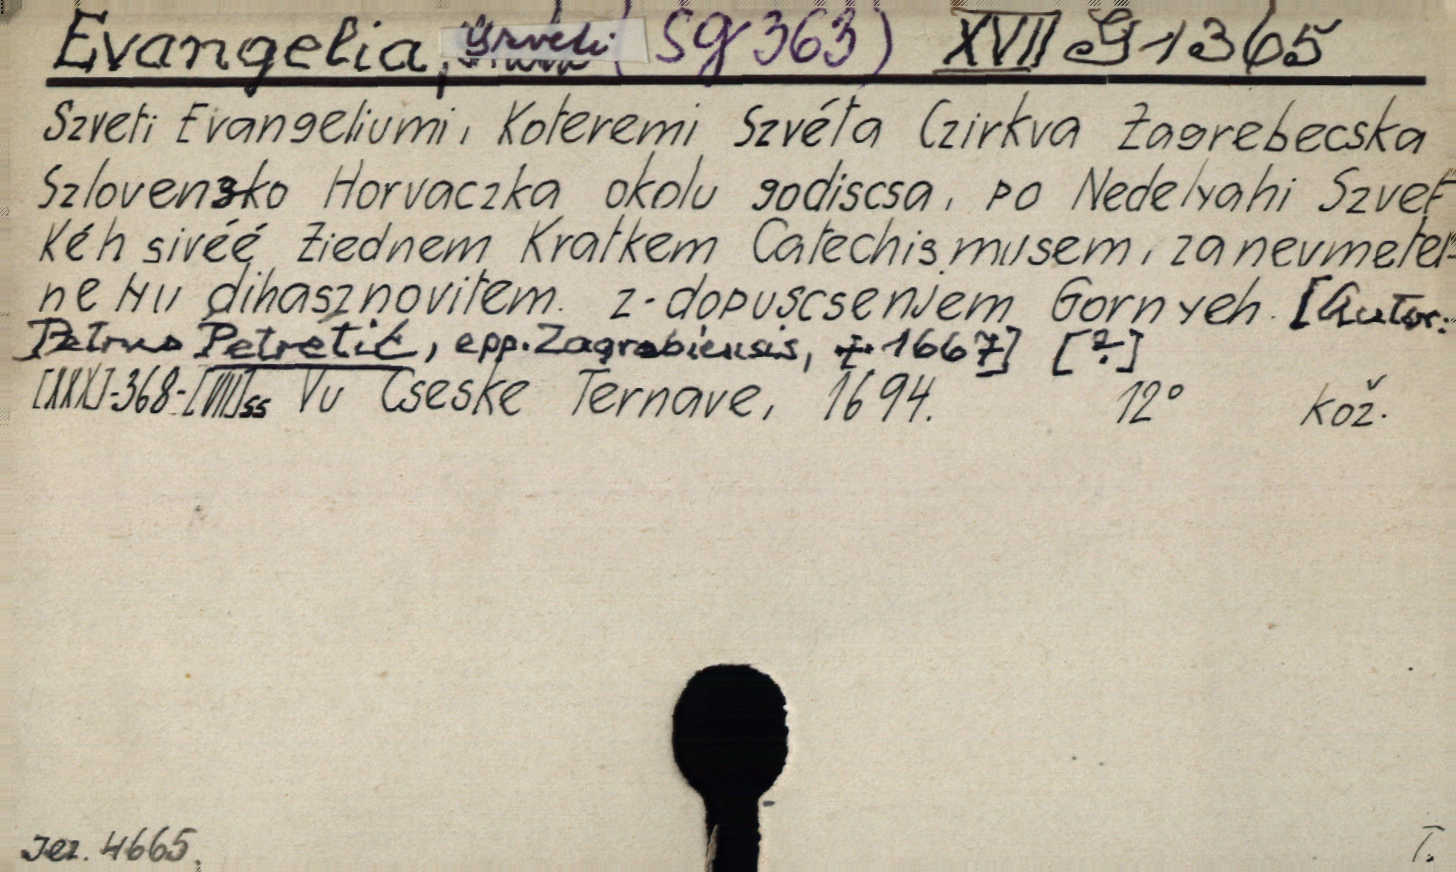 Evangelia, Szveti (Sg 363) XVII G 1365
Szveti Evangeliumi, Koteremi Szvéta Czirkva Zagrebecska
Szlovenzko Horvaczka okolu godiscsa, po Nedelyahi Szvet
Kéh sivéé Ziednem Kratkem Catechismusem, za neumetel-
ne Hu dihasznovitem. z-dopuscsenjem Gornyeh. [Autor:
Petrus Petretić, epp. Zagrabiensis, †. 1667] [?]
[XXX]-368-[VII]ss Vu Cseske Ternave, 1694. 12° kož.
Jez. 4665. T.